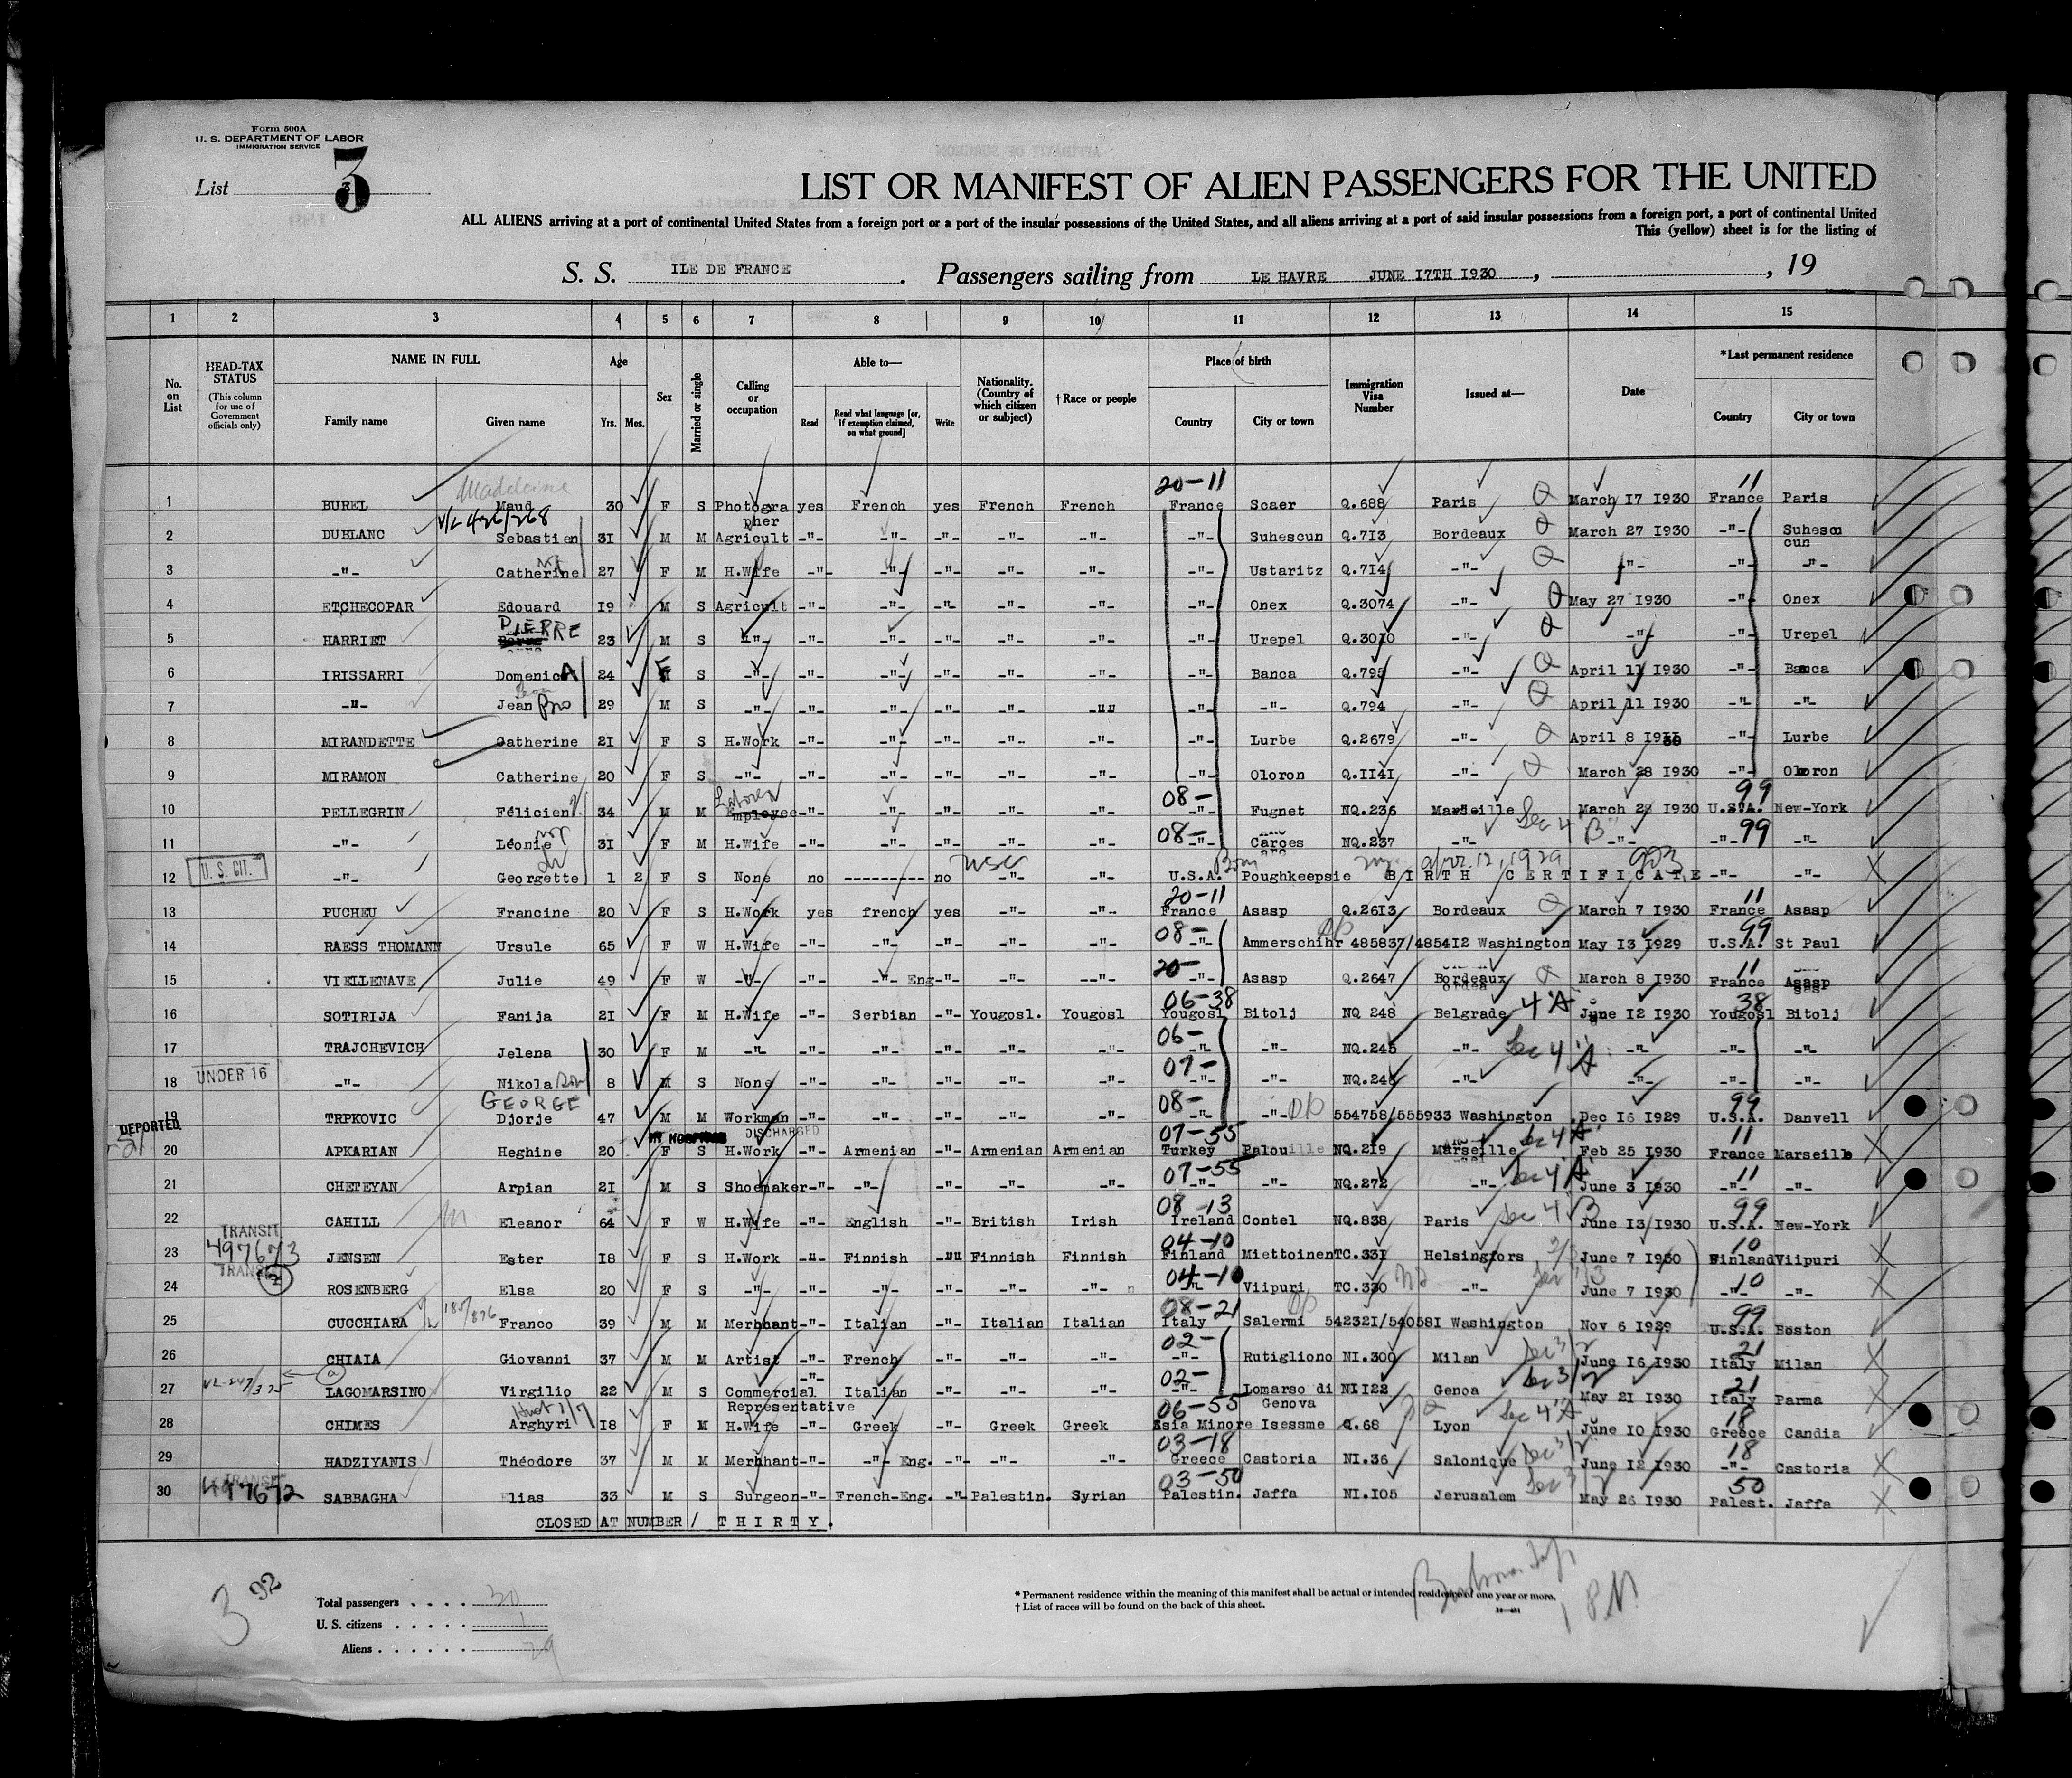 Form 500A
U. S. DEPARTMENT OF LABOR
IMMIGRATION SERVICE
List 3 3
LIST OR MANIFEST OF ALIEN PASSENGERS FOR THE UNITED
ALL ALIENS arriving at a port of continental United States from a foreign port or a port of the insular possessions of the United States, and all aliens arriving at a port of said insular possessions from a foreign port, a port of continental United
This (yellow) sheet is for the listing of
S. S. ILE DE FRANCE . Passengers sailing from LE HAVRE JUNE 17TH 1930 , , 19
1 2 3 4 5 6 7 8 9 10 11 12 13 14 15
No. on List HEAD-TAX STATUS (This column for use of Government officials only) NAME IN FULL Family name Given name Age Yrs. Mos. Sex Married or single Calling or occupation Able to— Read Read what language [or, if exemption claimed, on what ground] Write Nationality. (Country of which citizen or subject) †Race or people Place of birth Country City or town Immigration Visa Number Issued at— Date *Last permanent residence Country City or town
Madeleine 20-11 11
1 BUREL Maud 30 F S Photogra pher yes French yes French French France Scaer Q.688 Paris Q March 17 1930 France Paris
V/L 426/268
2 DUBLANC Sebastien 31 M M Agricult -"- -"- -"- -"- -"- -"- Suhescun Q.713 Bordeaux Q March 27 1930 -"- Suhescun
3 -"- Catherine 27 F M H.Wife -"- -"- -"- -"- -"- -"- Ustaritz Q.714 -"- Q -"- -"- -"-
4 ETCHECOPAR Edouard 19 M S Agricult -"- -"- -"- -"- -"- -"- Onex Q.3074 -"- Q May 27 1930 -"- Onex
5 HARRIET PIERRE 23 M S -"- -"- -"- -"- -"- -"- -"- Urepel Q.3010 -"- Q -"- -"- Urepel
6 IRISSARRI DomenicA 24 F S -"- -"- -"- -"- -"- -"- -"- Banca Q.795 -"- Q April 11 1930 -"- Banca
7 -"- Jean Bro 29 M S -"- -"- -"- -"- -"- -"- -"- -"- Q.794 -"- Q April 11 1930 -"- -"-
8 MIRANDETTE Catherine 21 F S H.Work -"- -"- -"- -"- -"- -"- Lurbe Q.2679 -"- Q April 8 1930 -"- Lurbe
9 MIRAMON Catherine 20 F S -"- -"- -"- -"- -"- -"- -"- Oloron Q.1141 -"- Q March 28 1930 -"- Oloron
Laborer 08- 99
10 PELLEGRIN Félicien 34 M M Employee -"- -"- -"- -"- -"- -"- Fugnet NQ.236 Marseille Sec 4 B March 28 1930 U.S.A. New-York
08- 99
11 -"- Léonie 31 F M H.Wife -"- -"- -"- -"- -"- -"- Carces NQ.237 -"- -"- -"- -"-
U. S. CIT. USC Born apr. 12, 1929 903
12 -"- Georgette 1 2 F S None no --------- no -"- -"- U.S.A. Poughkeepsie BIRTH CERTIFICATE -"- -"-
20-11 11
13 PUCHEU Francine 20 F S H.Work yes french yes -"- -"- France Asasp Q.2613 Bordeaux Q March 7 1930 France Asasp
08- 99
14 RAESS THOMANN Ursule 65 F W H.Wife -"- -"- -"- -"- -"- -"- Ammerschihr 485837/485412 Washington May 13 1929 U.S.A. St Paul
20- 11
15 VIELLENAVE Julie 49 F W -"- -"- -"- Eng -"- -"- -"- -"- Asasp Q.2647 Bordeaux Q March 8 1930 France Asasp
06-38 38
16 SOTIRIJA Fanija 21 F M H.Wife -"- Serbian -"- Yougosl. Yougosl Yougosl Bitolj NQ 248 Belgrade 4 A June 12 1930 Yougosl Bitolj
06-
17 TRAJCHEVICH Jelena 30 F M -"- -"- -"- -"- -"- -"- -"- -"- NQ.245 -"- Sec 4 A -"- -"- -"-
UNDER 16 07-
18 -"- Nikola Son 8 M S None -"- -"- -"- -"- -"- -"- -"- NQ.246 -"- -"- -"- -"-
GEORGE 08- 99
19 TRPKOVIC Djorje 47 M M Workman -"- -"- -"- -"- -"- -"- -"- 554758/555933 Washington Dec 16 1929 U.S.A. Danvell
DEPORTED IN HOSPITAL DISCHARGED 07-55 11
20 APKARIAN Heghine 20 F S H.Work -"- Armenian -"- Armenian Armenian Turkey Palou NQ.219 Marseille Sec 4 A Feb 25 1930 France Marseille
07-55 11
21 CHETEYAN Arpian 21 M S Shoemaker -"- -"- -"- -"- -"- -"- -"- NQ.272 -"- Sec 4 A June 3 1930 -"- -"-
08 13 99
22 CAHILL Eleanor 64 F W H.Wife -"- English -"- British Irish Ireland Contel NQ.838 Paris Sec 4 B June 13 1930 U.S.A. New-York
TRANSIT 497673 04-10 10
23 JENSEN Ester 18 F S H.Work -"- Finnish -"- Finnish Finnish Finland Miettoinen TC.331 Helsingfors June 7 1930 Finland Viipuri
TRANSIT 2 04-10 10
24 ROSENBERG Elsa 20 F S -"- -"- -"- -"- -"- -"- -"- Viipuri TC.330 -"- June 7 1930 -"- -"-
08-21 99
25 CUCCHIARA Franco 39 M M Merhhant -"- Italian -"- Italian Italian Italy Salermi 542321/540581 Washington Nov 6 1929 U.S.A. Boston
02- 21
26 CHIAIA Giovanni 37 M M Artist -"- French -"- -"- -"- -"- Rutigliono NI.300 Milan Sec 3/2 June 16 1930 Italy Milan
02- 21
27 LAGOMARSINO Virgilio 22 M S Commercial Representative -"- Italian -"- -"- -"- -"- Lomarso di Genova NI122 Genoa Sec 3/2 May 21 1930 Italy Parma
06-55 18
28 CHIMES Arghyri 18 F M H.Wife -"- Greek -"- Greek Greek Asia Minore Isessme Q.68 Lyon Sec 4 A June 10 1930 Greece Candia
03-18 18
29 HADZIYANIS Théodore 37 M M Merhhant -"- -"- Eng. -"- -"- -"- Greece Castoria NI.36 Salonique Sec 3/2 June 12 1930 -"- Castoria
TRANSIT 497672 03-50 50
30 SABBAGHA Elias 33 M S Surgeon -"- French-Eng. -"- Palestin. Syrian Palestin. Jaffa NI.105 Jerusalem Sec 3/2 May 26 1930 Palest. Jaffa
CLOSED AT NUMBER / THIRTY.
3 92
Total passengers . . . . 30
U. S. citizens . . . . . 1
Aliens . . . . . . 29
* Permanent residence within the meaning of this manifest shall be actual or intended residence of one year or more.
† List of races will be found on the back of this sheet.